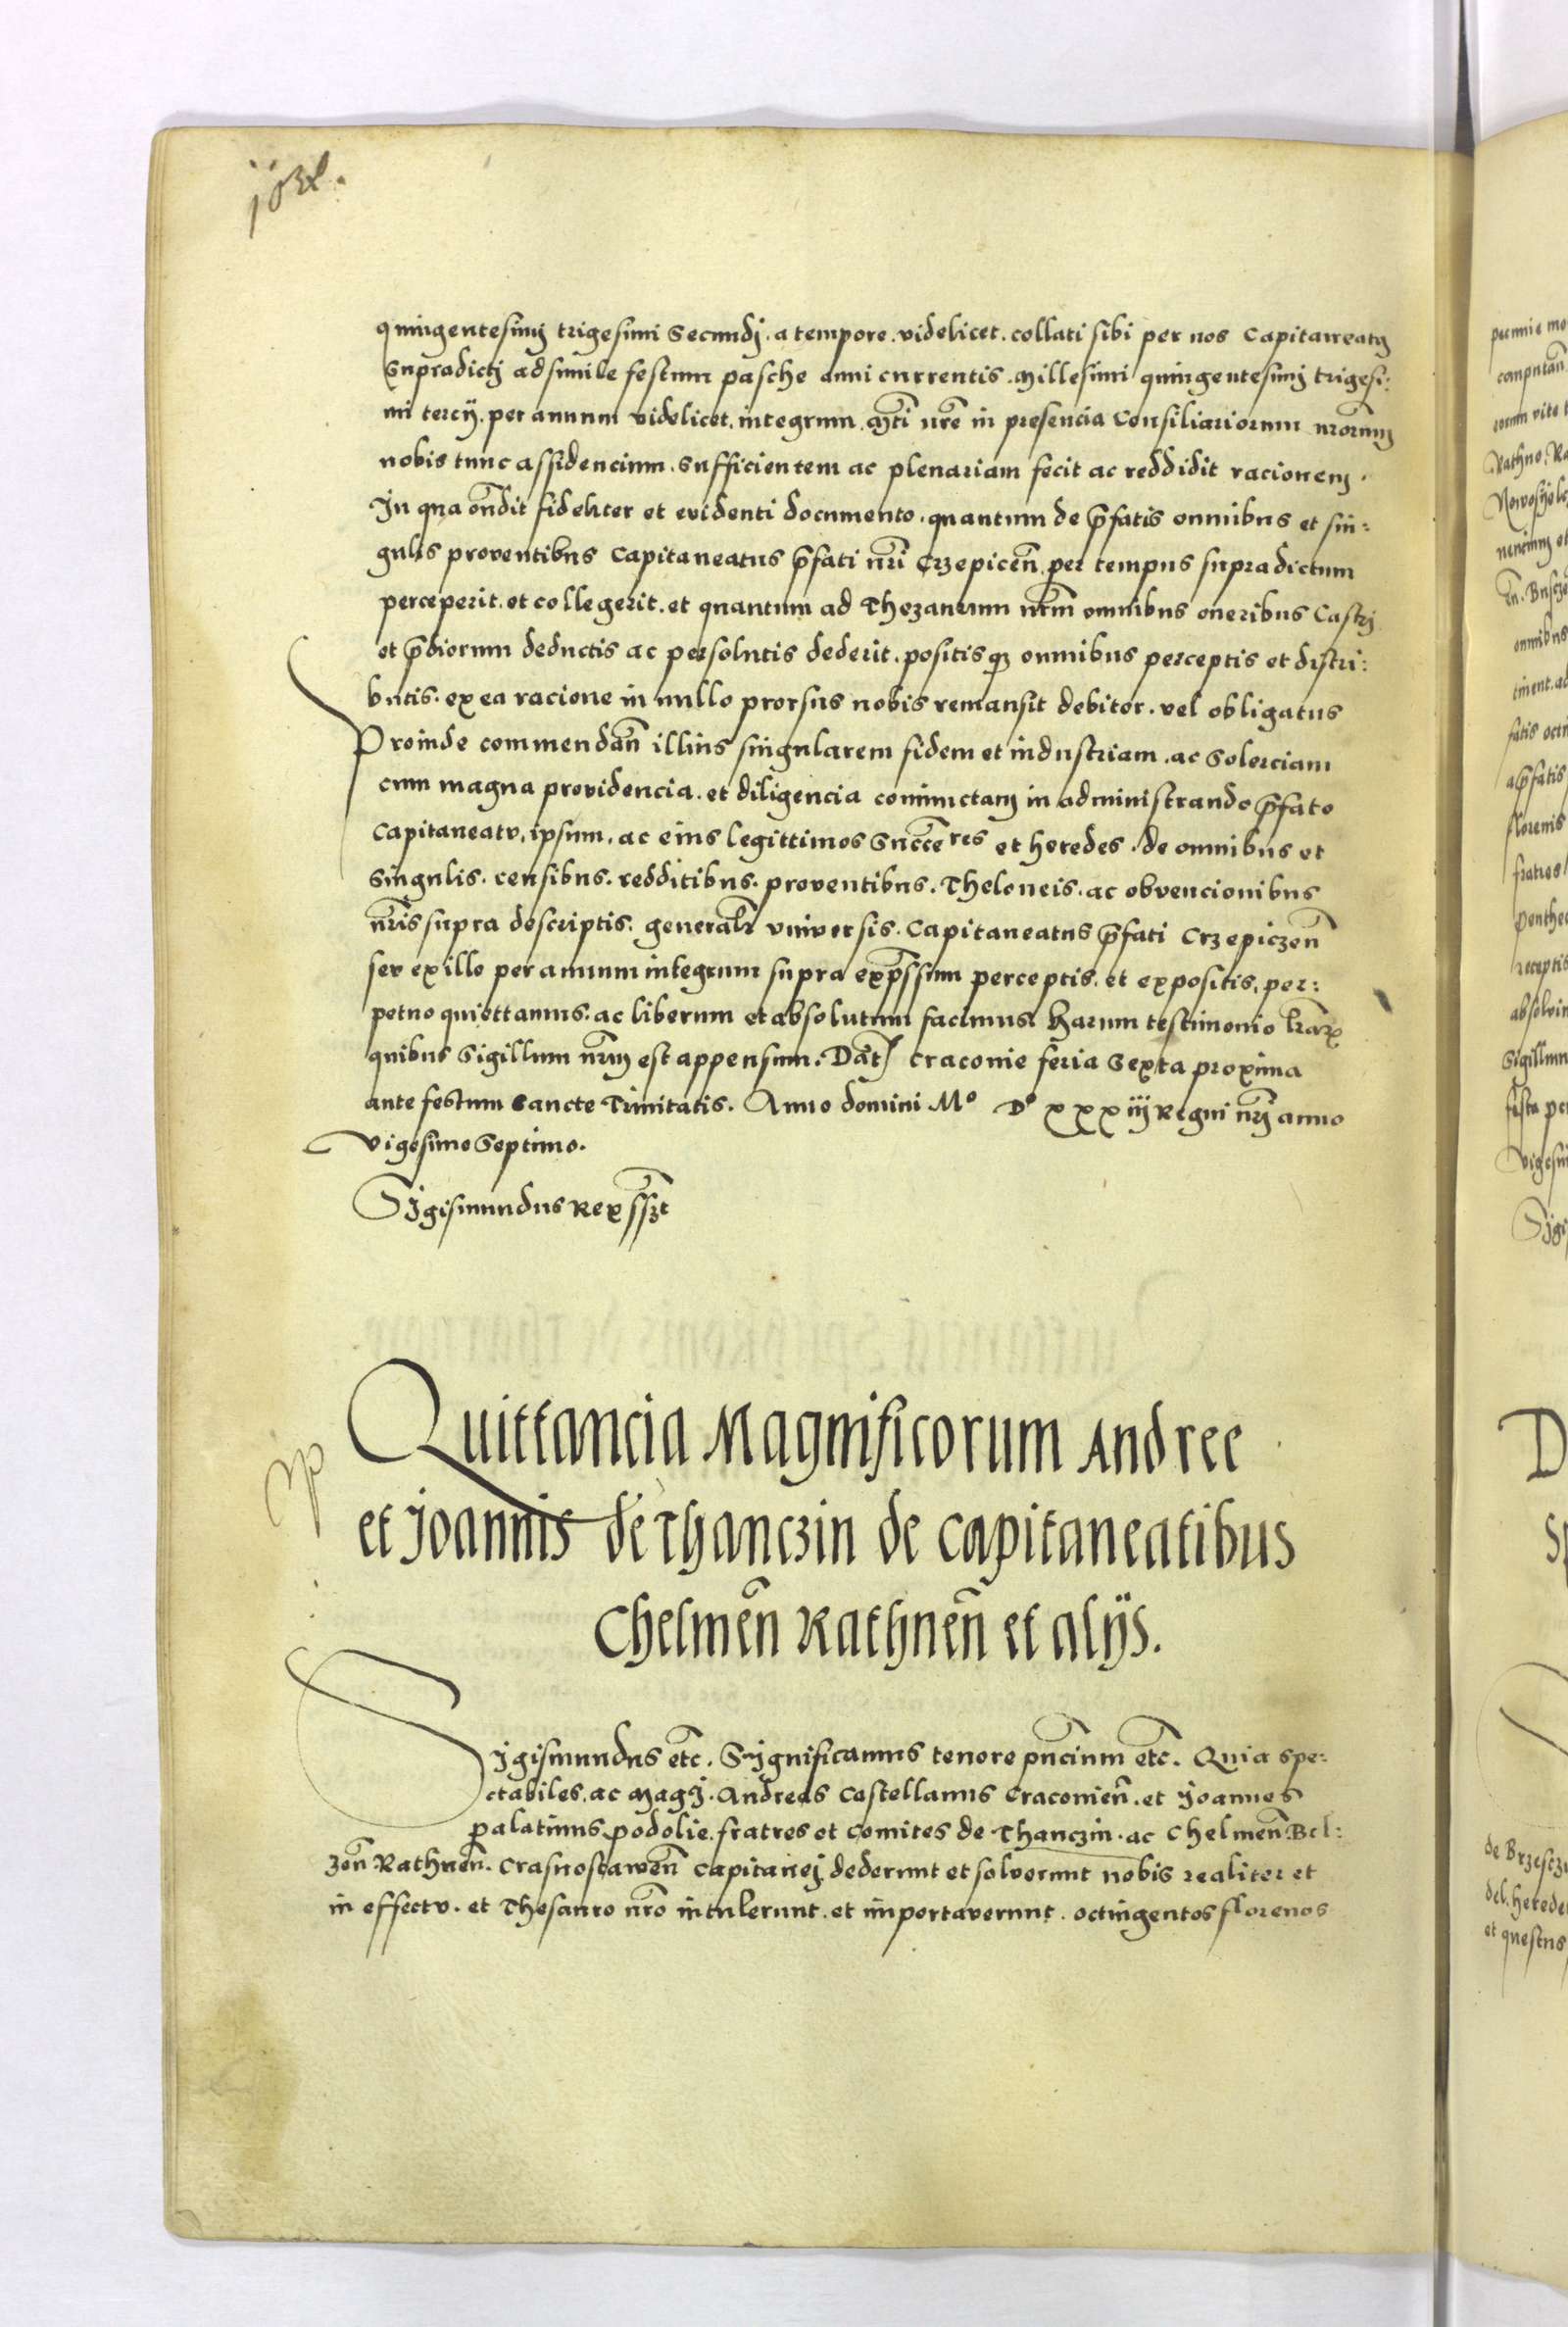 quingentesimi trigesimi Secundj. a tempore. videlicet. collati sibi per nos Capitaneatus
Supradictj ad simile festum pasche anni currentis. Millesimi quingentesimj trigesi:
mi tercij. per annum videlicet. integrum. Mti nre in presencia Consiliariorum nrorum
nobis tunc assidencium. Sufficientem ac plenariam fecit ac reddidit racionem.
In qua ondit fideliter et evidenti documento. quantum de pfatis omnibus et sin:
gulis proventibus Capitaneatus pfati nri Crzepicen per tempus supradictum
perceperit. et collegerit. et quantum ad Thezaurum nrm omnibus oneribus Castrj
et pdiorum deductis ac persolutis dederit. positisqz omnibus perceptis et distri:
butis. ex ea racione in nullo prorsus nobis remansit debitor. vel obligatus
Proinde commendan illius singularem fidem et industriam. ac Solerciam
cum magna providencia. et diligencia coniunctam in administrando pfato
Capitaneatu, ipsum. ac eius legittimos Succeres et heredes. de omnibus et
Singulis. censibus. redditibus. proventibus. Theloneis. ac obvencionibus
nris supra descriptis. generalr vniversis. Capitaneatus pfati Crzepiczen
seu ex illo per annum integrum supra expssum perceptis. et expositis, per:
petuo quiettamus. ac liberum et absolutum facimus. Harum testimonio lrarum
quibus Sigillum nrum est appensum. Dat Craconie feria Sexta proxima
ante festum Sancte Trinitatis. Anno domini Mº Dº xxxiij Regni nrj anno
vigesimo Septimo.
Sigismundus Rex sszt
Quittancia Magnificorum Andree
et Joannis de Thanczin de capitaneatibus
Chelmen Rathnen et alijs.
Sigismundus etc. Significamus tenore pncium etc. Quia spe:
ctabiles. ac Magci. Andreas Castellanus Craconien. et Joannes
palatinus podolie. fratres et Comites de Thanczin. ac Chelmen Bel:
zen Rathnen. Crasnostawen Capitanej. dederunt et solverunt nobis realiter et
in effectu. et Thesauro nro intulerunt. et importaverunt. octingentos florenos